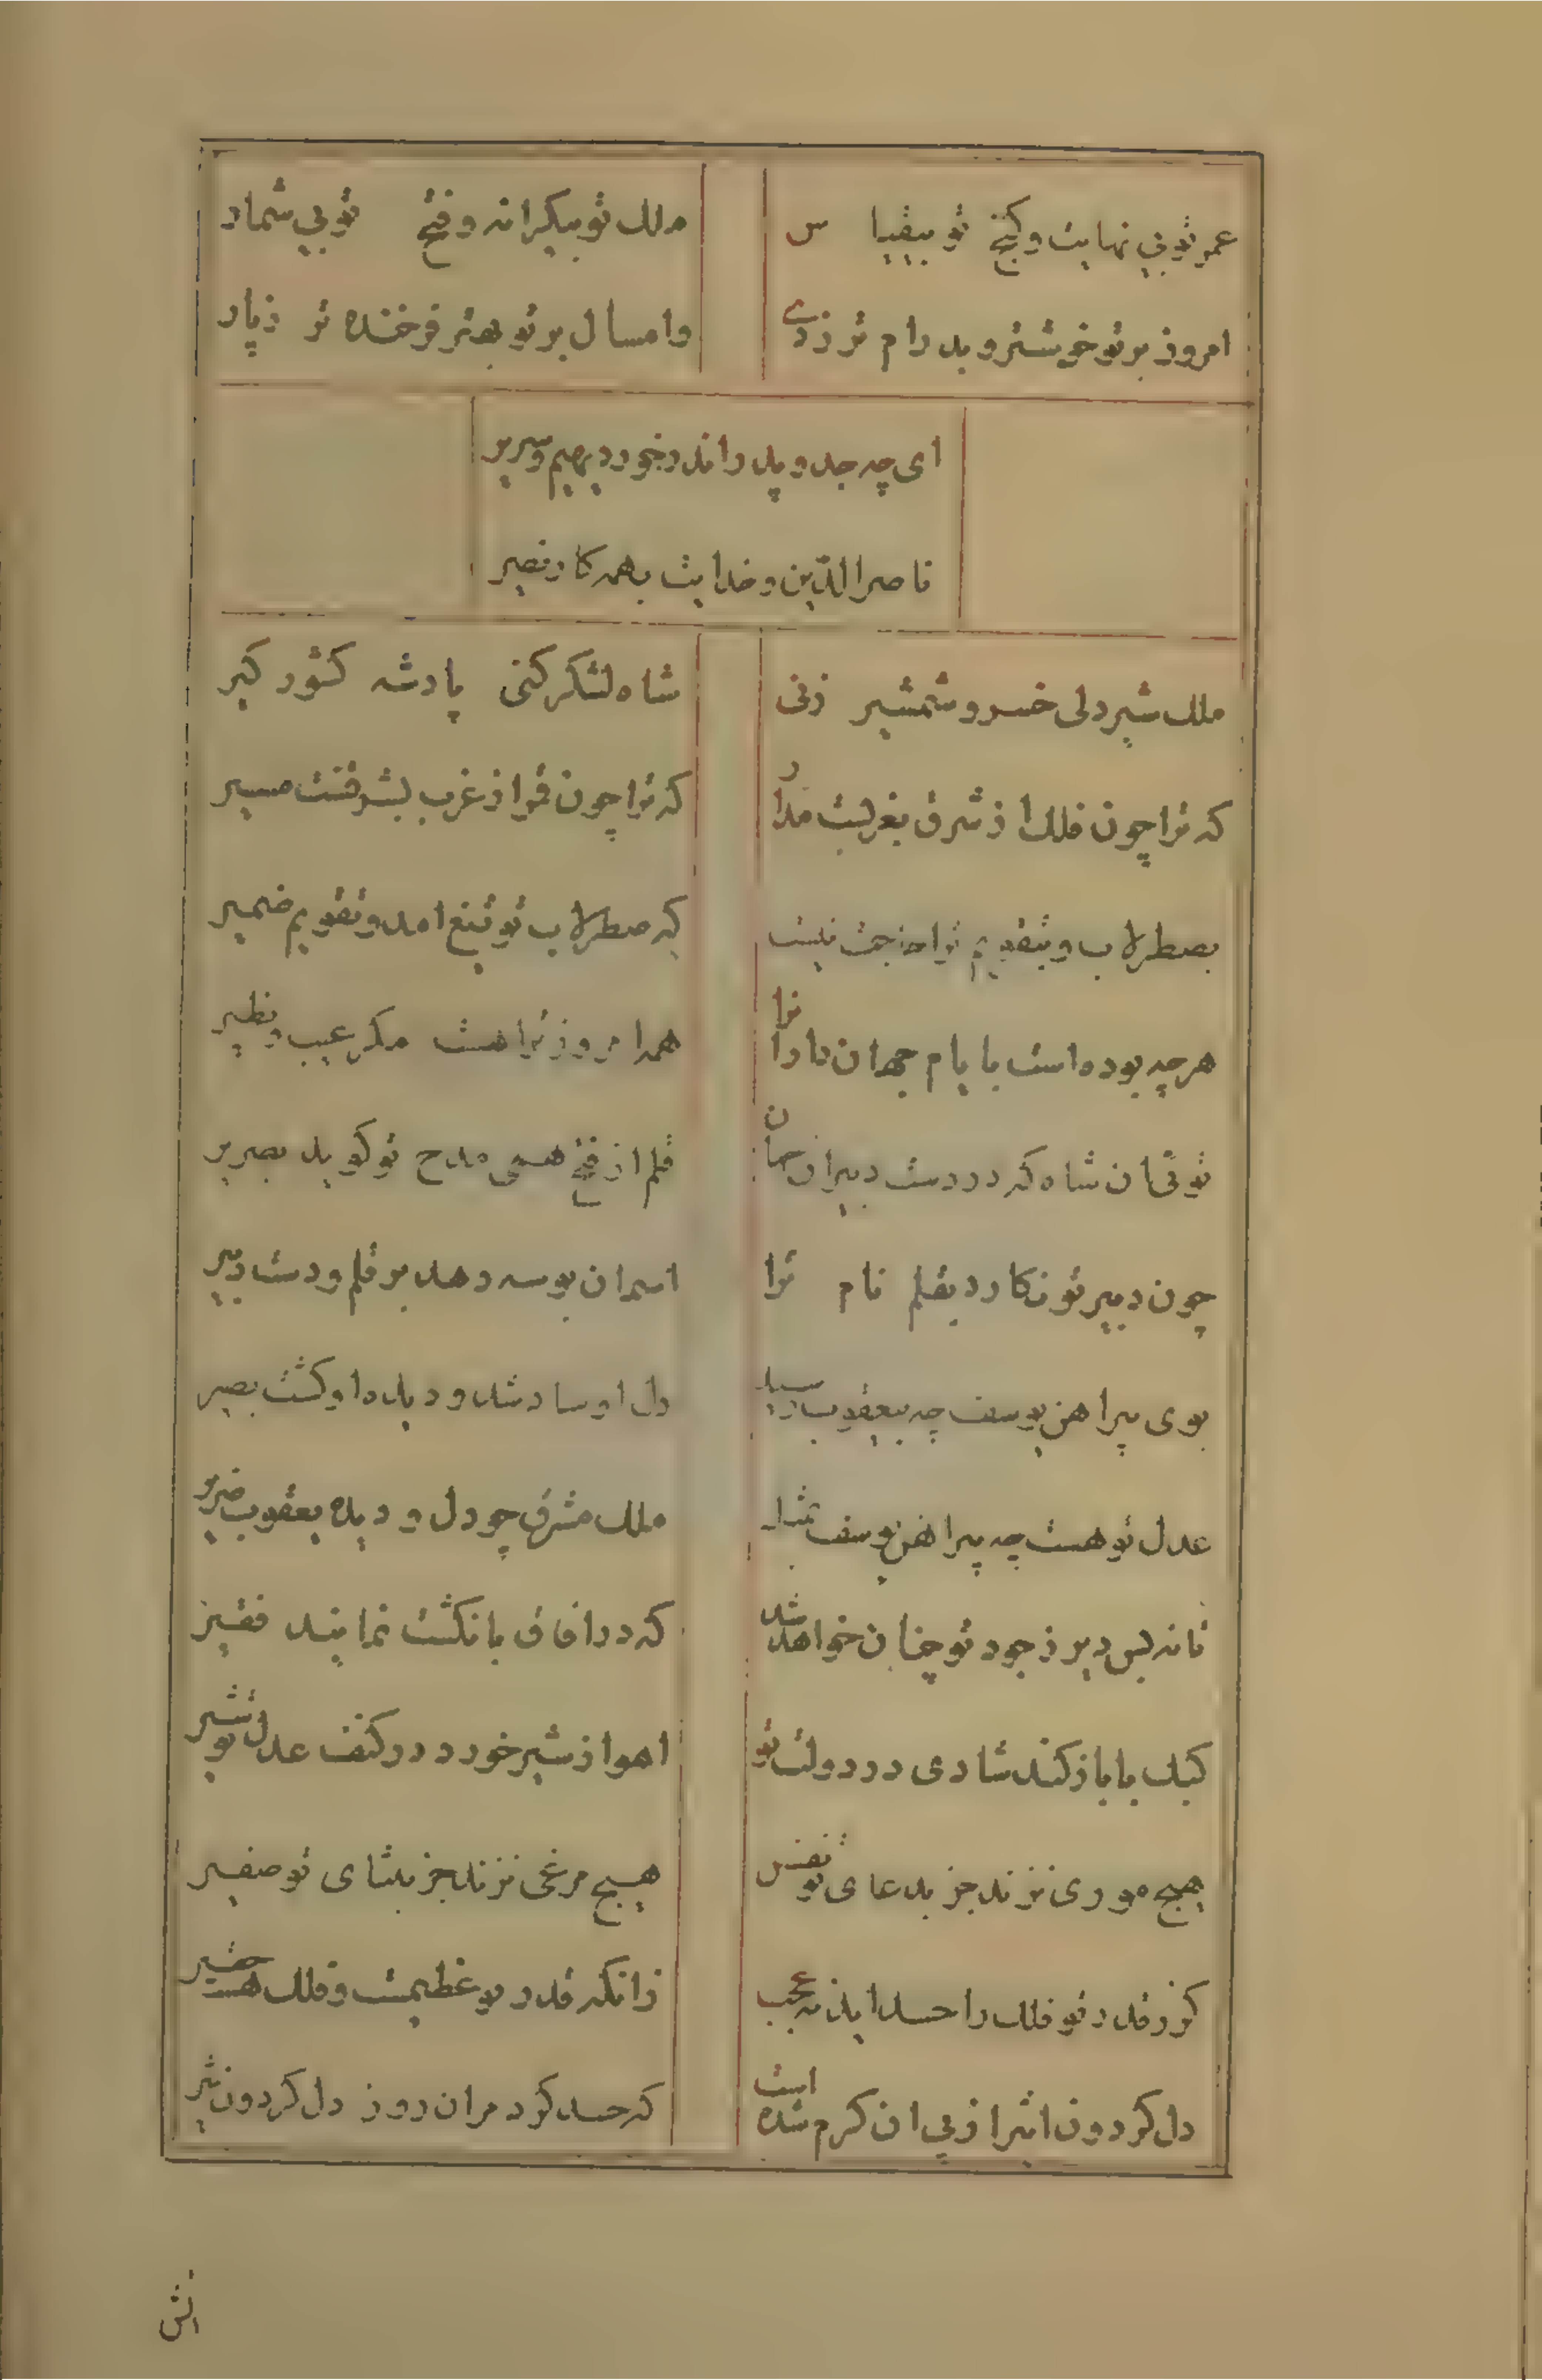 عمر تو بی نهایت و کنج تو بیقیا س
ملک تو بیکرانه و فتح تو بی شمار
امروز بر تو خوشتر و پدرام تر ز دی
و امسال بر تو بهتر فرخنده تر ز پار
ای چه جد و پدر اندر خور دیهیم و سریر
ناصر الدین و خدایت بهمه کار نصیر
ملک شیر دلی خسرو شمشیر زنی
شاه لشکر کنی پادشه کشور کیر
که ترا چون فلک از شرق بغربست مدار
که ترا چون قمر از غرب بشرقست مسیر
بصطرلاب و بتقویم ترا حاجت نیست
که صطرلاب تو تیغ امد و تقویم ضمیر
هرچه بوده است بایام جهان دارا نرا
همه امروز ترا هست مکر عیب و نظیر
توئی ان شاه که در دست دبیران جهان
قلم از فتح همی مدح تو کوید بصریر
چون دبیر تو نکارد بقلم نام ترا
اسمان بوسه دهد بر قلم و دست دبیر
بوی پیراهن یوسف چه بیعقوب رسید
دل او شاد شد و دیده او کشت بصیر
عدل تو هست چه پیراهن یوسف بمثل
ملک مشرق چو دل و دیده یعقوب ضریر
تا نه بس دیر ز جود تو چنان خواهد شد
که در افاق بانکشت نمایند فقیر
کبک با باز کند شادی در دولت تو
اهو از شیر خورد در کنف عدل تو شیر
هیچ موری نزند جز بدعای تو نفس
هیچ مرغی نزند جز بثنای تو صفیر
کز قدر تو فلک را حسد اید نه عجب
زانکه قدر تو عظیمست و فلک هست حقیر
دل کردون اثیر از پی ان کرم شده است
که حسد کرد مران روز دل کردون اثیر